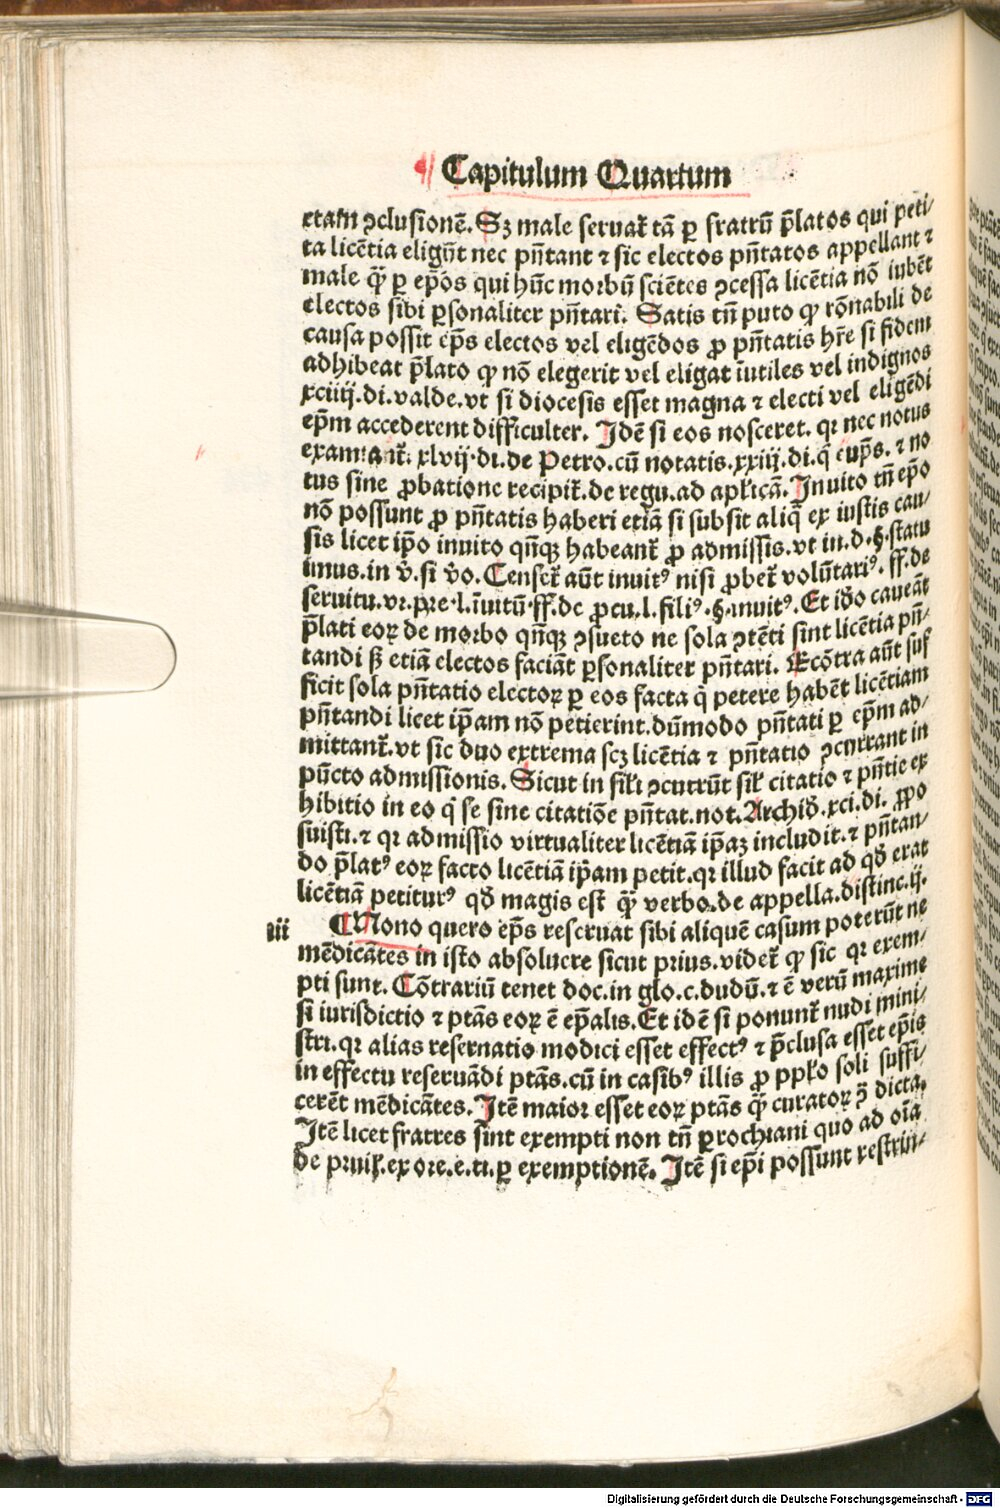 ¶ Capitulum Quartum
etatn ꝯclusionē. Sꝫ male seruat᷑ tā ꝑ fratrū p̄latos qui peti/
ta licētia eligūt nec pn̄tant ⁊ sic electos pn̄tatos appellant ⁊
male q̄ꝫ ꝑ ep̄os qui hūc morbū sciētes ꝯcessa licētia nō iubēt
electos sibi ꝑsonaliter pn̄tari. Satis tn̄ puto ꝙ rōnabili de
causa possit ep̄s electos vel eligēdos ꝓ pn̄tatis hr̄e si fidem
adhibeat p̄lato ꝙ nō elegerit vel eligat īutiles vel indignos
xciiij.di.valde.vt si diocesis esset magna ⁊ electi vel eligēdi
ep̄m accederent difficulter. Idē si eos nosceret. qꝛ nec notus
examinat᷑. xlvij.di.de Petro.cū notatis.xxiij.di.q̄ eup̄s. ⁊ no
tus sine ꝓbatione recipit᷑.de regu.ad apl̓icā. Inuito tn̄ ep̄o
nō possunt ꝓ pn̄tatis haberi etiā si subsit aliq̄ ex iustis cau/
sis licet ip̄o inuito qn̄qꝫ habeant᷑ ꝓ admissis.vt in.d.§.statu
imus.in v̄.si v̄o. Censet᷑ aūt inuitꝰ nisi ꝓbet᷑ volūtariꝰ. ff.de
seruitu.vr.pre.l.īuitū.ff.de ꝓcu.l.filiꝰ.§.inuitꝰ. Et iđo caueāt
p̄lati eoꝝ de morbo qn̄qꝫ ꝯsueto ne sola ꝯtēti sint licētia pn̄/
tandi ß etiā electos faciāt ꝑsonaliter pn̄tari. Ecōtra aūt suf
ficit sola pn̄tatio electoꝝ ꝑ eos facta q̇ petere habēt licētiam
pn̄tandi licet ip̄am nō petierint.dūmodo pn̄tati ꝑ ep̄m ad/
mittant᷑.vt sic duo extrema scꝫ licētia ⁊ pn̄tatio ꝯcurrant in
pūcto admissionis. Sicut in sil̓i ꝯcurrūt sil̓ citatio ⁊ pn̄tie ex
hibitio in eo q̇ se sine citatiōe pn̄tat.not.Archiđ.xci.di. ꝓpo
suisti.⁊ qꝛ admissio virtualiter licētiā ip̄aꝫ includit.⁊ pn̄tan/
do p̄latꝰ eoꝝ facto licētiā ip̄am petit.qꝛ illud facit ad qđ erat
licētiā petiturꝰ qđ magis est q̄ꝫ verbo.de appella.distinc.ij.
iii ¶ Nono quero ep̄s reseruat sibi aliquē casum poterūt ne
mēdicātes in isto absoluere sicut prius.videt᷑ ꝙ sic qꝛ exem/
pti sunt. Cōtrariū tenet doc.in glo.c.dudū.⁊ ē verū maxime
si iurisdictio ⁊ ptās eoꝝ ē ep̄alis. Et idē si ponunt᷑ nudi mini/
stri.qꝛ alias reseruatio modici esset effectꝰ ⁊ p̄clusa esset ep̄is
in effectu reseruādi ptās.cū in casibꝰ illis ꝓ ppl̓o soli suffi/
cerēt mēdicātes. Itē maior esset eoꝝ ptās q̄ꝫ curatoꝝ ꝯ̄ dicta.
Itē licet fratres sint exempti non tn̄ ꝑrochiani quo ad oīa
de priuil̓.ex ore.e.ti.ꝑ exemptionē. Itē si ep̄i possunt restrin/
Digitalisierung gefördert durch die Deutsche Forschungsgemeinschaft - DFG